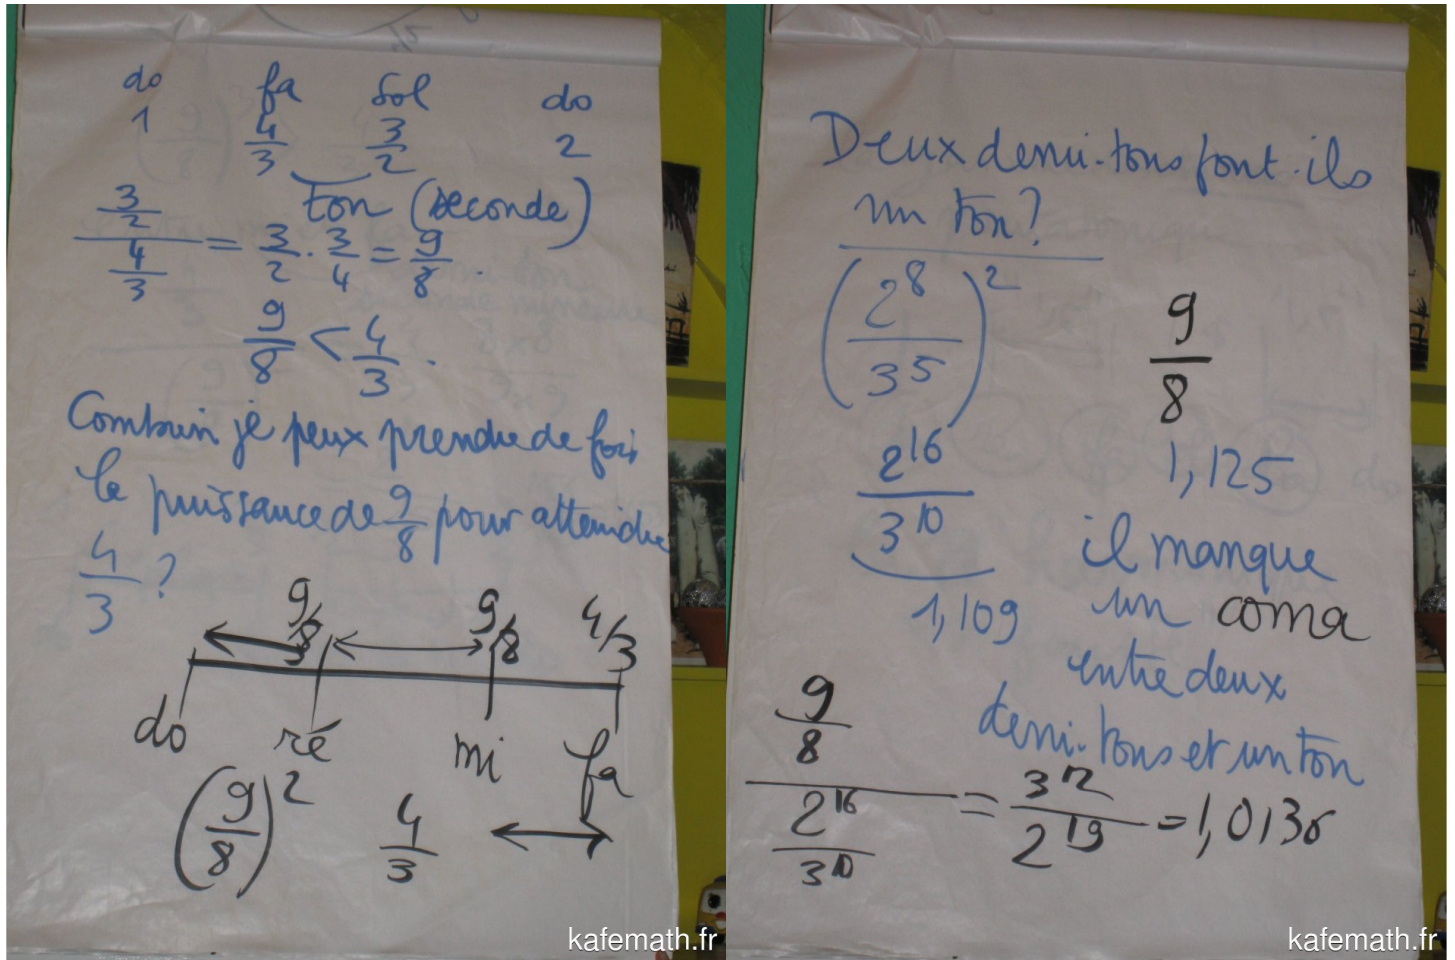 do fa sol do
1 4/3 3/2 2
ton (seconde)
(3/2)/(4/3) = 3/2 . 3/4 = 9/8
9/8 < 4/3 .
Combien je peux prendre de fois
la puissance de 9/8 pour atteindre
4/3 ?
9/8 9/8 4/3
do ré mi fa
(9/8)^2 4/3
kafemath.fr
Deux demi-tons font-ils
un ton?
(2^8/3^5)^2 9/8
2^16/3^10 1,125
1,109
il manque
un coma
entre deux
demi-tons et un ton
(9/8)/(2^16/3^10) = 3^12/2^19 = 1,0136
kafemath.fr